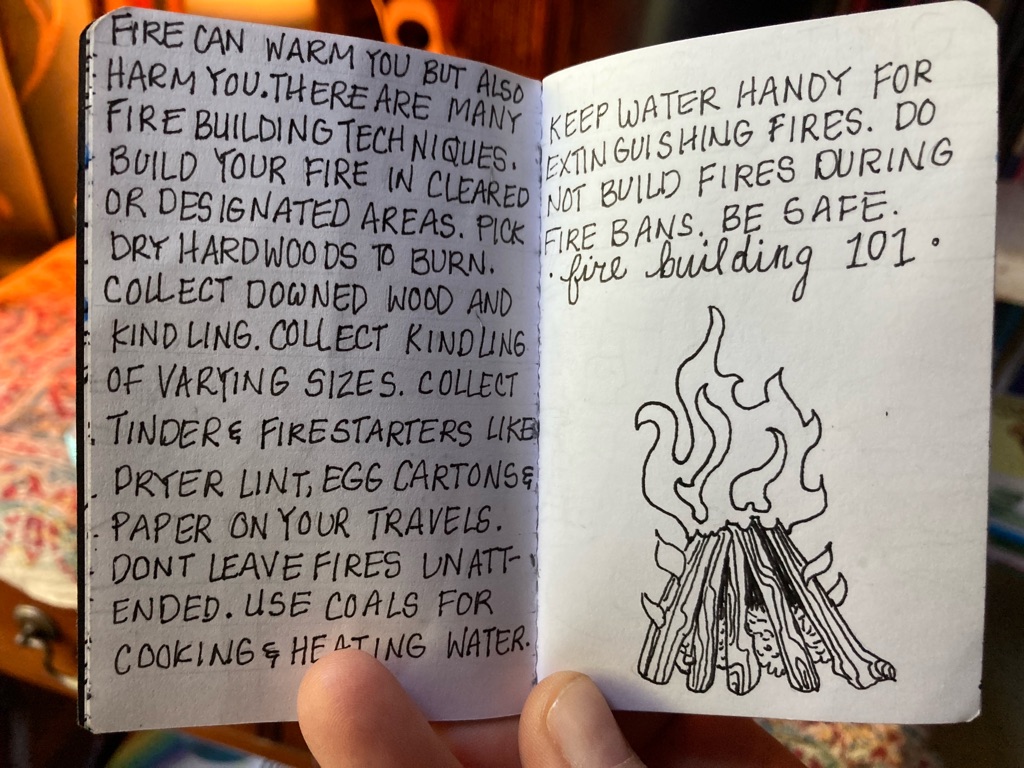 FIRE CAN WARM YOU BUT ALSO
HARM YOU. THERE ARE MANY
FIRE BUILDING TECHNIQUES.
BUILD YOUR FIRE IN CLEARED
OR DESIGNATED AREAS. PICK
DRY HARDWOODS TO BURN.
COLLECT DOWNED WOOD AND
KINDLING. COLLECT KINDLING
OF VARYING SIZES. COLLECT
TINDER & FIRESTARTERS LIKE
DRYER LINT, EGG CARTONS &
PAPER ON YOUR TRAVELS.
DONT LEAVE FIRES UNATT-
ENDED. USE COALS FOR
COOKING & HEATING WATER.
KEEP WATER HANDY FOR
EXTINGUISHING FIRES. DO
NOT BUILD FIRES DURING
FIRE BANS. BE SAFE.
· fire building 101 ·